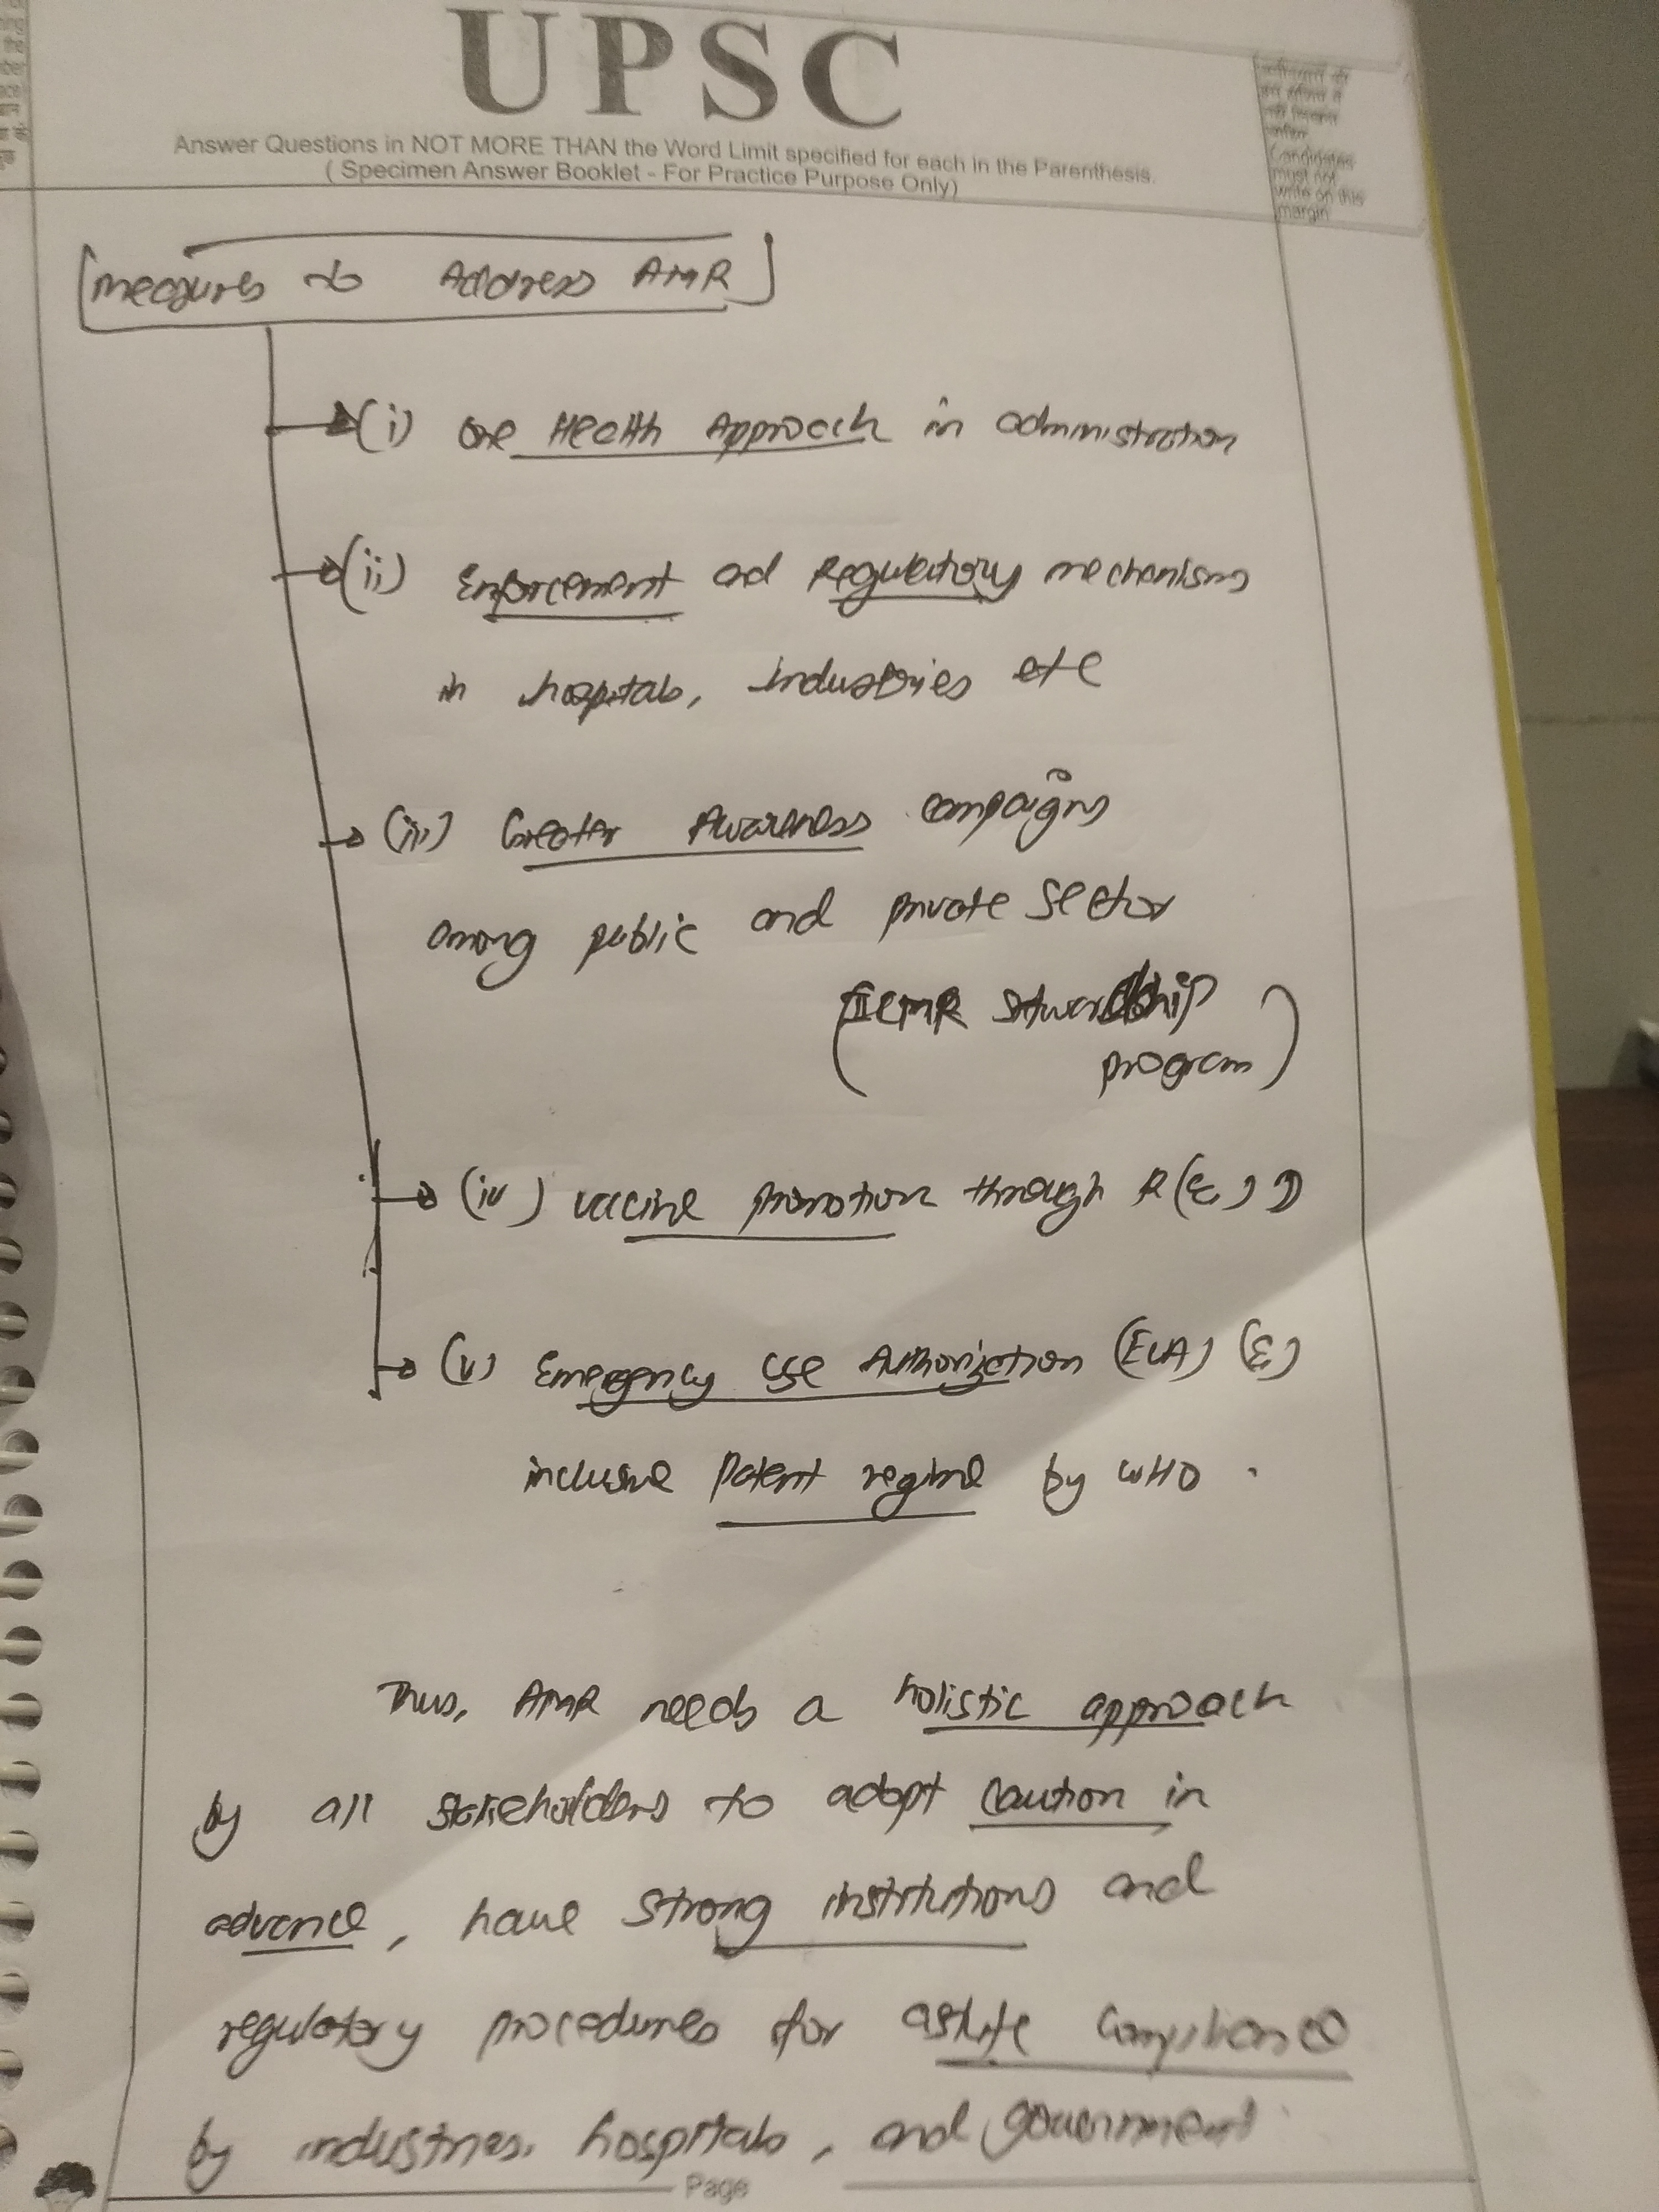 UPSC
Answer Questions in NOT MORE THAN the Word Limit specified for each in the Parenthesis.
( Specimen Answer Booklet - For Practice Purpose Only)
Candidates
must not
write on this
margin
Measures to Address AMR
(i) One Health Approach in administration
(ii) Enforcement and Regulatory mechanisms
in hospitals, industries etc
(iii) Greater Awareness campaigns
among public and private sector
(ICMR Stwardship
program)
(iv) vaccine promotion through R & D
(v) Emergency Use Authorization (EUA) &
inclusive Patent regime by WHO.
Thus, AMR needs a holistic approach
by all stakeholders to adopt caution in
advance, have strong institutions and
regulatory procedures for astute compliance
by industries, hospitals, and government
Page